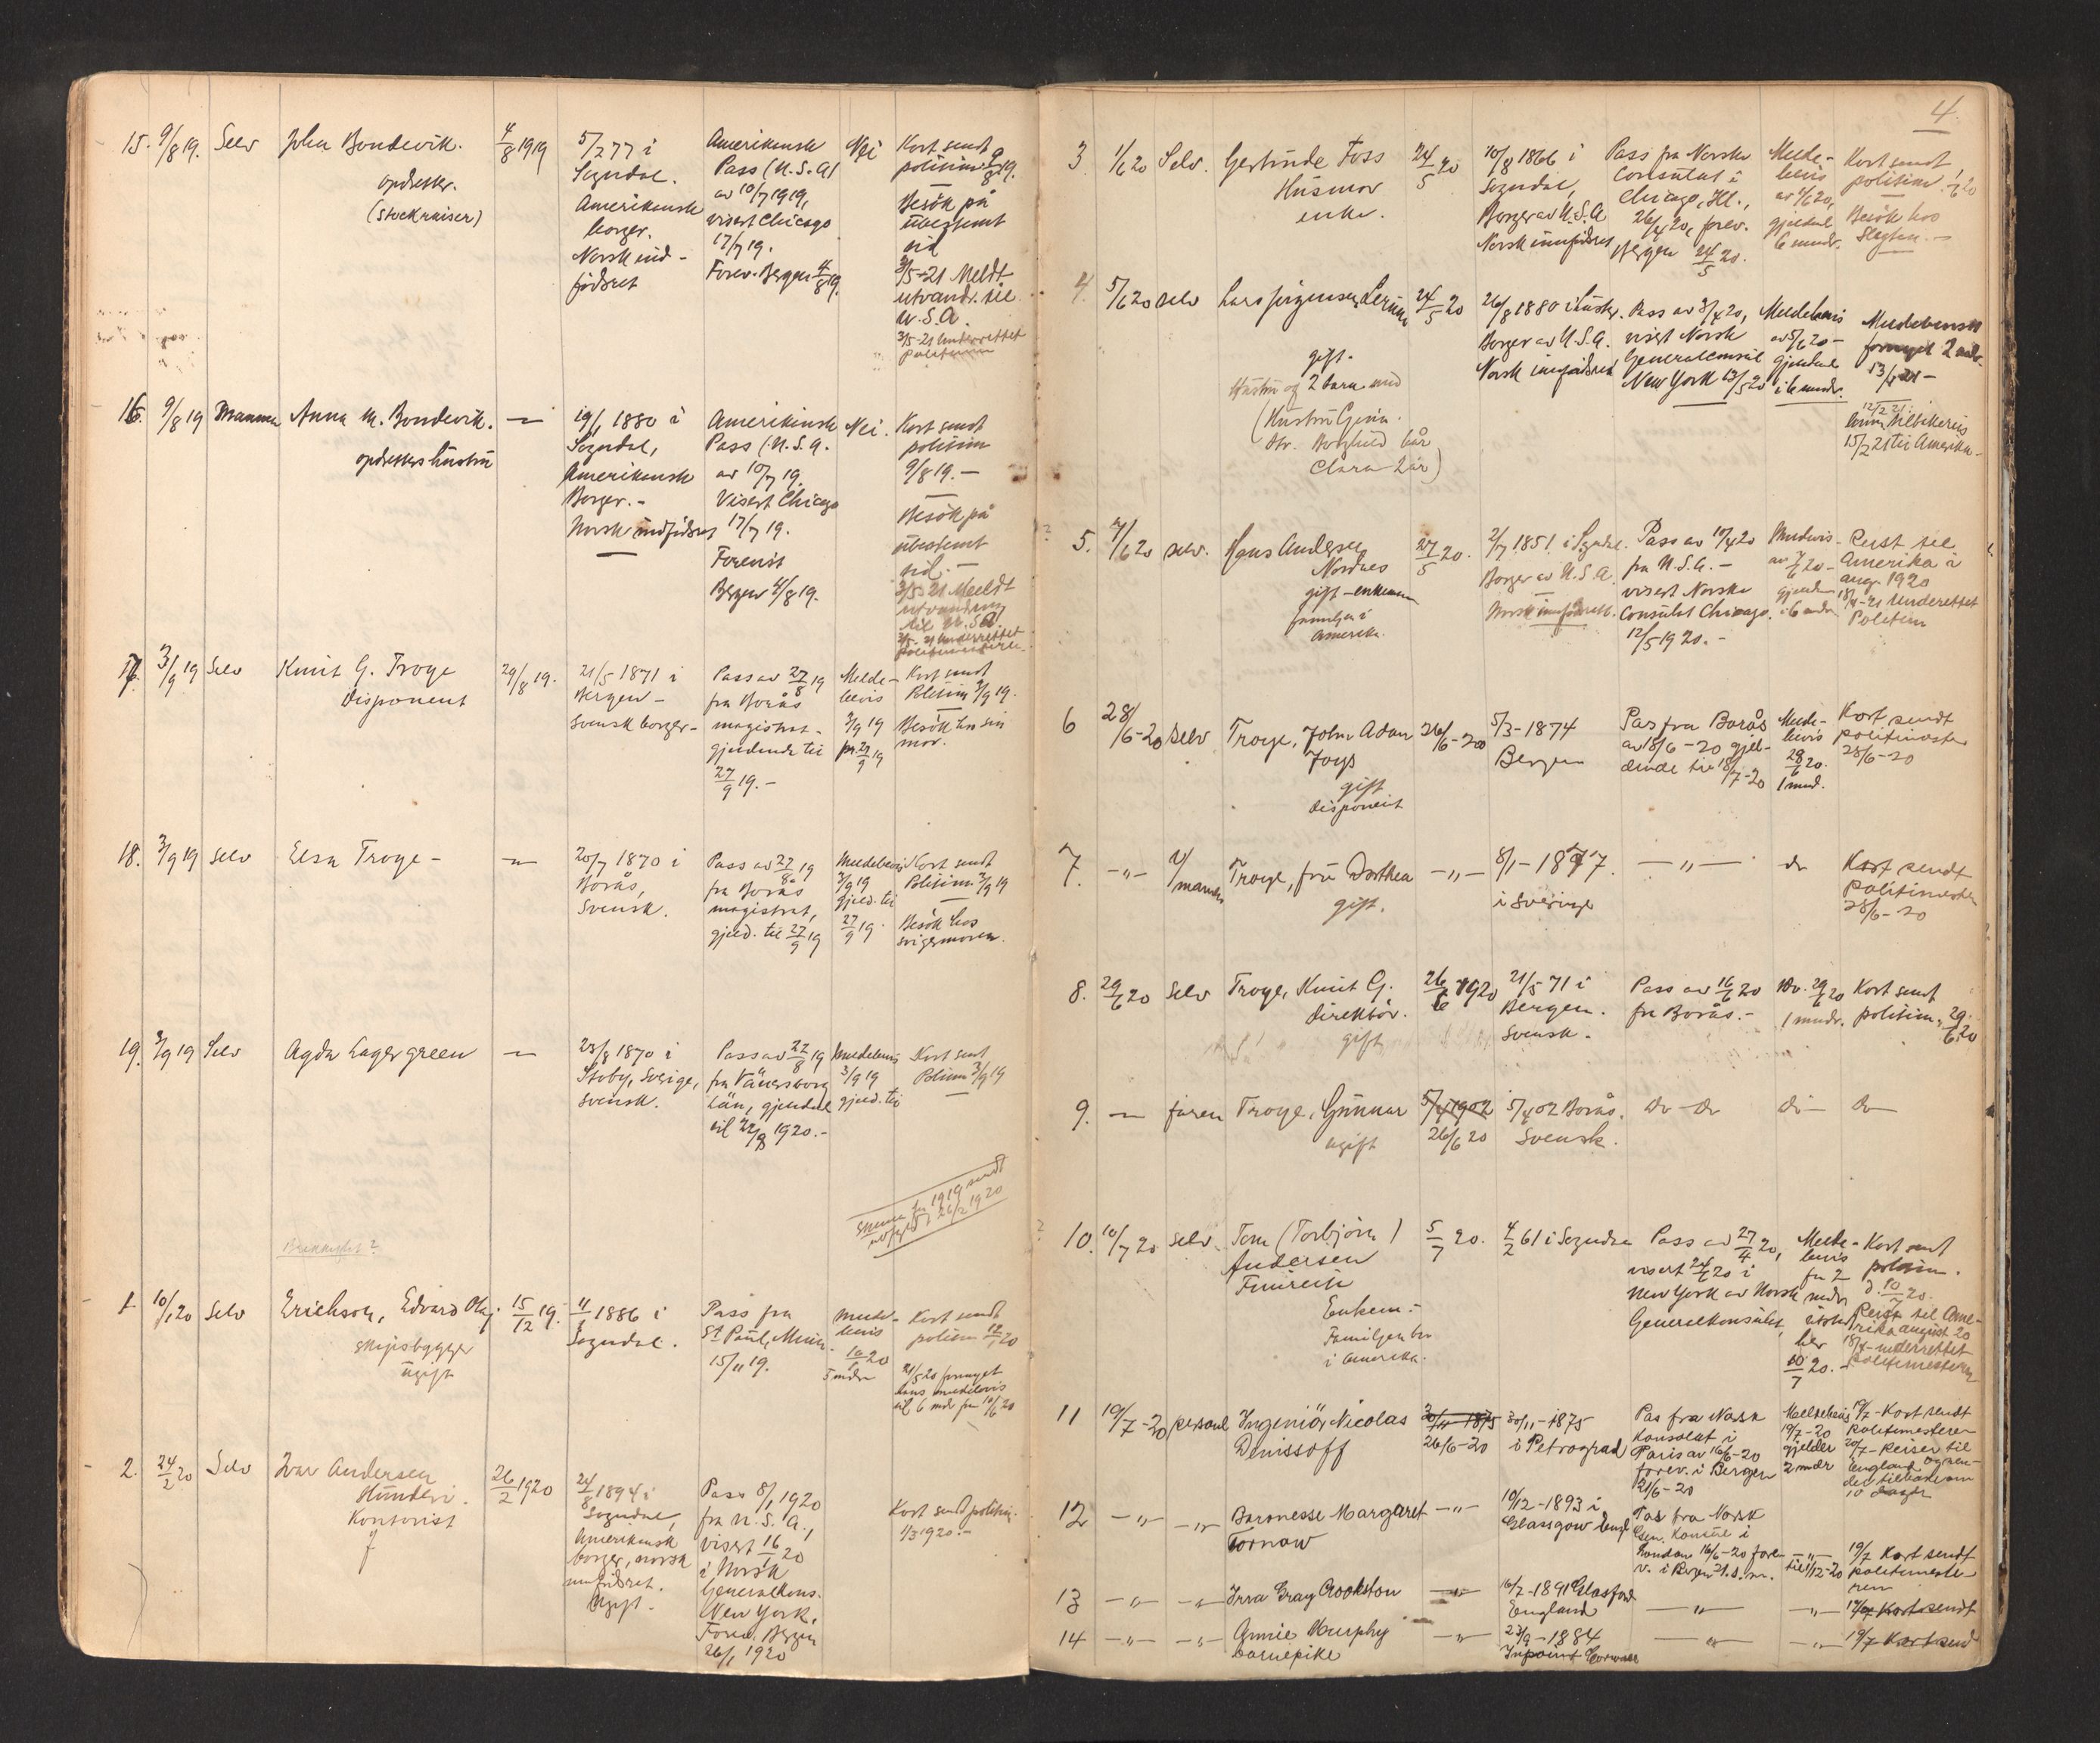 15. 9/8 19. Selv John Bondevik. 4/8 1919 5/2 77 i Amerikansk Nei Kort sendt
opdretter. Sogndal. Pass (U.S.A) politim. 9/8 19.
(Stockraiser) Amerikansk av 10/7 1919, Besøk på
borger. visert Chicago ubestemt
Norsk ind- 17/7 19. tid
födsret Forev. Bergen 4/8 19. 3/5-21 Meldt
utvandr. til
U.S.A.
3/5-21 Underrettet
politim
16. 9/8 19 Mannen Anna M. Bondevik. — 19/1 1880 i Amerikansk Nei. Kort sendt
opdretters hustru Sogndal, Pass (U.S.A. politim
Amerikansk av 10/7 19. 9/8 19.—
Borger.- Visert Chicago Besøk på
Norsk indfödsret 17/7 19. ubestemt
Forevist tid.—
Bergen 4/8 19. 3/5-21 Meldt
utvandring
til U.S.A.
3/5-21 Underrettet
17. 3/9 19 Selv Knut G. Troye 29/8 19. 21/5 1871 i Pass av 27/8 19 Melde- Kort sendt
Disponent Bergen- fra Borås bevis Politim 3/9 19.
Svensk borger- magistrat- 3/9 19 Besøk hos sin
gjeldende til 27/9 19 mor.
27/9 19.-
18. 3/9 19 Selv Elsa Troye - — 20/7 1870 i Pass av 27/8 19 Meldebevis Kort sendt
Borås, fra Borås 3/9 19 Politim. 3/9 19
Svensk. magistrat, gjeld. til
gjeld. til 27/9 19 27/9 19. Besøk hos
svigermoren.
19. 3/9 19 Selv Agda Lagergreen — 23/8 1870 i Pass av 22/8 19 Meldebevis Kort sendt
Stoby, Sverige, fra Vänersborg 3/9 19 Politim 3/9 19
Svensk. Län, gjeldende gjeld. til
til 22/8 1920.-
for 1919 sendt
26/2 1920
1. 10/1 20 Selv Erickson, Edvard Olaf. 15/12 19. 4/1 1886 i Pass fra Melde- Kort sendt
skipsbygger Sogndal. St Paul, Minn. bevis politim 12/1 20
ugift 15/11 19. 10/1 20
5 mdr 21/5 20 fornyet
hans meldebevis
til 6 mdr fra 10/6 20
2. 24/2 20 Selv Ivar Andersen 26/2 1920 24/8 1894 i Pass 8/1 1920
Hunderi. Sogndal, fra U.S.A., Kort sendt politim.
Kontorist Amerikansk visert 16/1 20 1/3 1920.-
borger, norsk i Norsk
innfödsret. Generalkons.
Ugift. New York.
Forev. Bergen
26/1 1920
4.
3 1/6 20 Selv. Gertrude Foss 24/5 20 10/8 1866 i Pass fra Norske Melde- Kort sendt
Husmor Sogndal, Consulat i bevis politim. 1/6 20
enke. Borger av U.S.A. Chicago, Ill., av 1/6 20, Besök hos
Norsk innfödsret 26/4 20, forev. gjeldende Slegten.-
Bergen 24/5 20. 6 mndr.
4. 5/6 20 selv Lars Jörgensen Lerum 24/5 20 26/8 1880 i Luster. Pass av 3/4 20, Meldebevis Meldebeviset
gift. Borger av U.S.A. visert Norsk av 5/6 20- fornyet 2 mdr.
Hustru og 2 barn med Norsk innfödsret Generalconsul gjeldende
New York 13/5 20 i 6 mndr. 12/2 21.
15/2 21 til Amerika.-
Clara 2 år)
5. 7/6 20 selv. Hans Andersen 27/5 20. 2/7 1851 i Sogndal. Pass av 10/4 20 Reist til
Nordnes Borger av U.S.A. fra U.S.A.- av 7/6 20- Amerika i
gift-enkemann Norsk innfödsrett. visert Norske gjelden aug. 1920
familje i Consulat Chicago. i 6 mdr 18/4-21 Underrettet
Amerika. 12/5 1920.- Politim
6 28/6-20 selv Troye, John Adam 26/6-20 5/3-1874 Pas fra Borås Melde- Kort sendt
Joys Bergen av 18/6-20 gjel- bevis politimester
gift dende til 18/7-20 28/6 20. 28/6-20
disponent 1 mnd.
7. -"- v/mannen Troye, frü Dorthea -"- 8/1-1877. -"- do Kort sendt
gift. i Sverige politimester
28/6-20
8. 29/6 20 Selv Troye, Knut G. 26/6 1920 21/5 71 i Pass av 16/6 20 Do. 29/6 20 Kort sendt
direktör. Bergen. fra Borås.- 1 mndr. politim. 29/6 20
gift Svensk.
9. — faren Troye, Gunnar 5/4 1902 5/4 02 Borås. do do do- do-
ugift 26/6 20 Svensk.
10. 10/7 20 selv Tom (Torbjörn) 5/7 20. 4/2 61 i Sogndal Pass av 27/4 20, Melde- Kort sendt
Andersen visert 24/6 20 i bevis politim.
New York av Norsk for 2 d. 10/7 20.
Enkem.- Generalkonsulat mdr Reist til Ame-
Familjen bor rika august 20
i Amerika. 10/7 20.- 18/4- underrettet
politimesteren
11 19/7-20 personl Ingeniör Nicolas 30/11 1875 30/11-1875 Pas fra Norsk Meldebevis 19/7-Kort sendt
Denissoff 26/6-20 i Petrograd Konsulat i 19/7-20 politimesteren
Paris av 16/6-20 gjelder 20/7-Reiser til
forev. i Bergen 2 mdr England og ven-
21/6-20 der tilbake om
10 dager
12 -"- -"- Baronesse Margaret -"- 19/12-1893 i Pas fra Norsk
Tornow Glasgow Gen. Konsul i
London 16/6-20 -"- 19/7 Kort sendt
politimeste-
ren
13 -"- -"- Irra Gray Crookston -"- 16/7-1891 -"- -"- 19/7 Kort sendt
England
14 -"- -"- Annie Murphy -"- 23/9-1884 -"- -"- 19/7 Kort sendt
barnepike